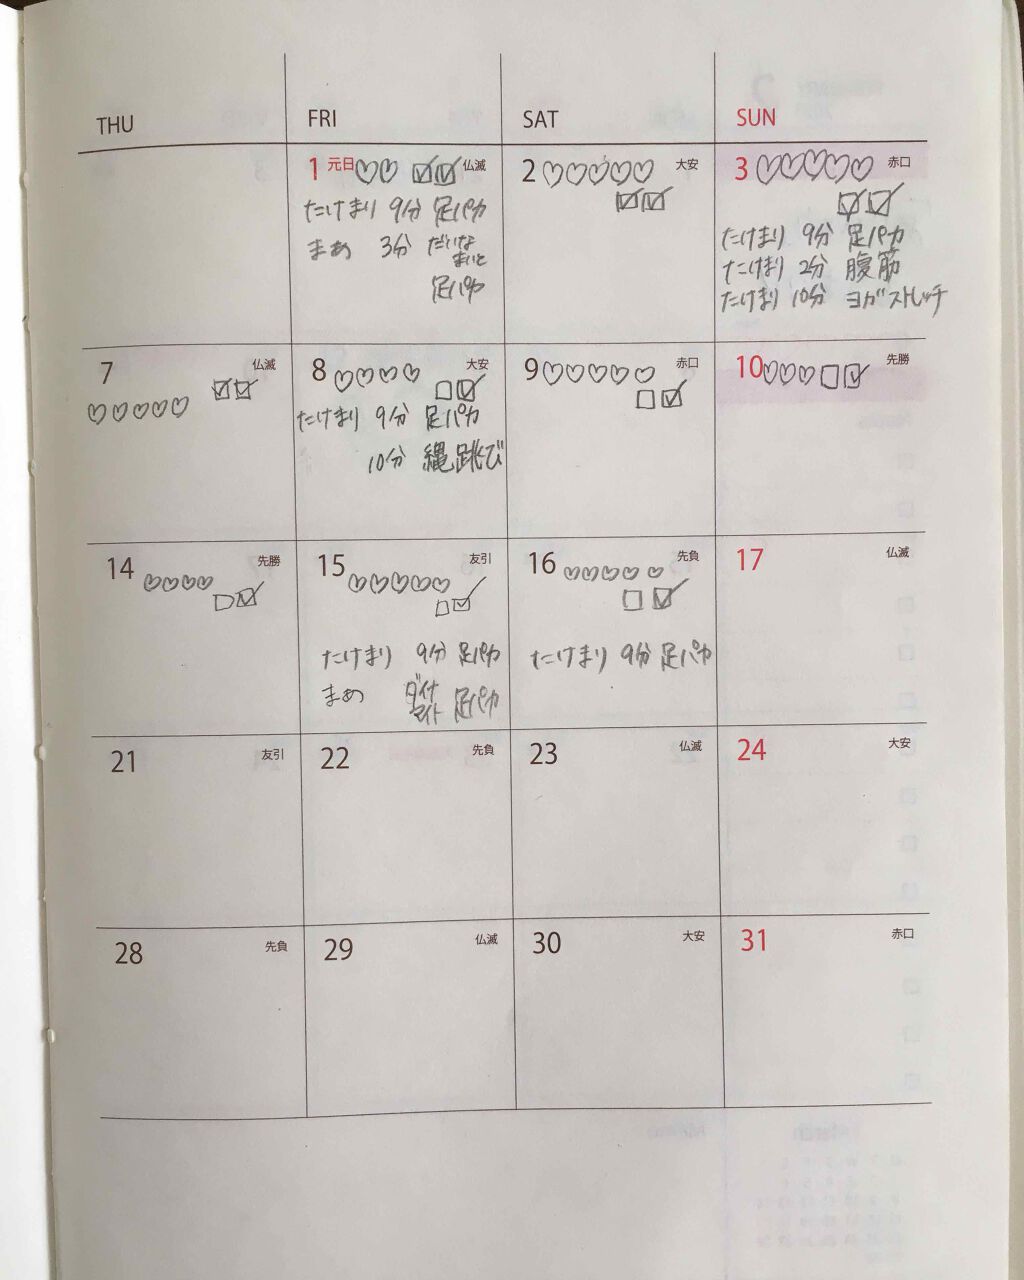 THU FRI SAT SUN
1 元日 ♡♡ ☑☑ 仏滅
たけまり 9分 足パカ
まめ 3分 だいな
まいと
足パカ
2 ♡♡♡♡♡ 大安
☑☑
3 ♡♡♡♡♡ 赤口
☑☑
たけまり 9分 足パカ
たけまり 2分 腹筋
たけまり 10分 ヨガストレッチ
7 仏滅
☑☑
♡♡♡♡♡
8 ♡♡♡♡ 大安
☐☑
たけまり 9分 足パカ
10分 縄跳び
9 ♡♡♡♡♡ 赤口
☐☑
10 ♡♡♡☐☑ 先勝
14 ♡♡♡♡ 先勝
☐☑
15 ♡♡♡♡♡ 友引
☐☑
たけまり 9分 足パカ
まめ ダイナ
マイト 足パカ
16 ♡♡♡♡♡ 先負
☐☑
たけまり 9分 足パカ
17 仏滅
21 友引
22 先負
23 仏滅
24 大安
28 先負
29 仏滅
30 大安
31 赤口